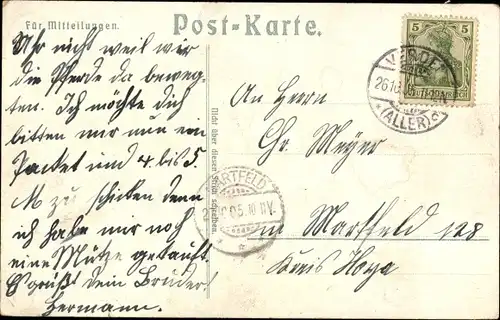 Für Mitteilungen.
Post-Karte.
Uhr nicht weil wir
die Pferde da beweg-
ten. Ich möchte dich
bitten mir nun ein
Packet und 4 bis 5
M zu schicken denn
ich habe mir noch
eine Mütze gekauft.
Es grüßt Dein Bruder
Hermann.
Nicht über diesen Strich schreiben.
5 5
DEUTSCHES REICH
VERDEN
26.10.
* (ALLER) *
MARTFELD
05.10
An Herrn
Chr. Meyer
in Martfeld
Kreis Hoya